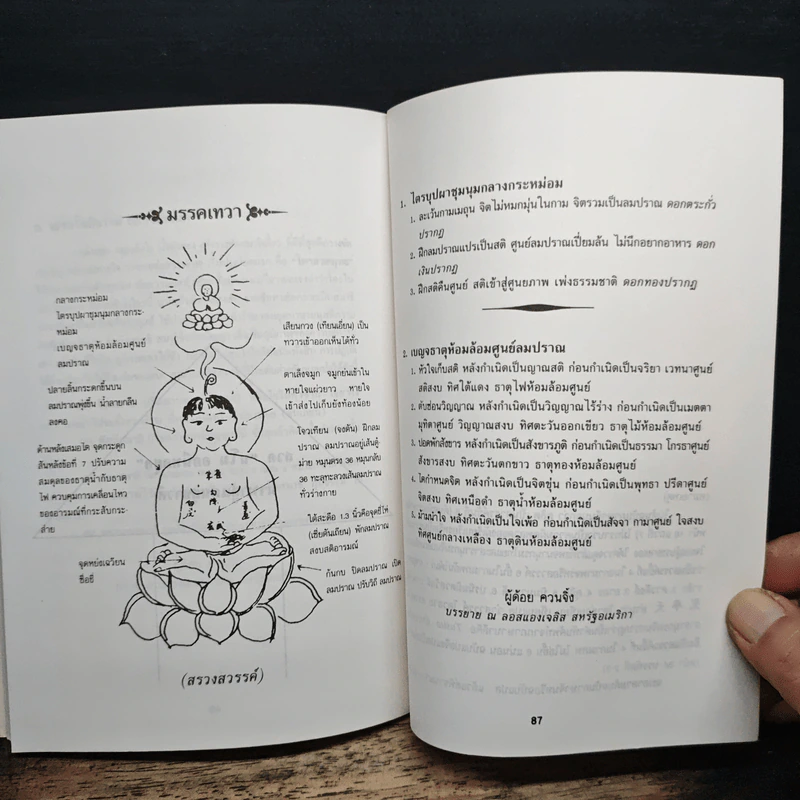 มรรคเทวา
กลางกระหม่อม
ไตรบุปผาชุมนุมกลางกระ-
หม่อม
เบญจธาตุห้อมล้อมศูนย์
ลมปราณ
ปลายลิ้นกระดกขึ้นบน
ลมปราณพุ่งขึ้น น้ำลายกลืน
ลงคอ
ด้านหลังเสมอไต จุดกระดูก
สันหลังข้อที่ 7 ปรับความ
สมดุลของธาตุน้ำกับธาตุ
ไฟ ควบคุมการเคลื่อนไหว
ของอารมณ์ที่กระสับกระ-
ส่าย
จุดหย่งเฉวียน
ซือยี่
เสียนกวง (เทียนเอี่ยน) เป็น
ทวารเข้าออกเห็นได้ทั่ว
ตาเล็งจมูก จมูกย่นเข้าใน
หายใจแผ่วยาว หายใจ
เข้าส่งไปเก็บยังท้องน้อย
โจวเทียน (จงตัน) ฝึกลม
ปราณ ลมปราณอยู่เส้นตู๋-
ม่าย หมุนตรง 36 หมุนกลับ
36 ทะลุทะลวงเส้นลมปราณ
ทั่วร่างกาย
ใต้สะดือ 1.3 นิ้วคือจุดชี่ไห่
(เซี่ยตันเถียน) พักลมปราณ
สงบสติอารมณ์
ก้นกบ ปิดลมปราณ เปิด
ลมปราณ ปรับวิถี ลมปราณ
(สรวงสวรรค์)
1. ไตรบุปผาชุมนุมกลางกระหม่อม
1. ละเว้นกามเมถุน จิตไม่หมกมุ่นในกาม จิตรวมเป็นลมปราณ ดอกตระกั่ว
ปรากฏ
2. ฝึกลมปราณแปรเป็นสติ ศูนย์ลมปราณเปี่ยมล้น ไม่นึกอยากอาหาร ดอก
เงินปรากฏ
3. ฝึกสติคืนศูนย์ สติเข้าสู่ศูนยภาพ เพ่งธรรมชาติ ดอกทองปรากฏ
2. เบญจธาตุห้อมล้อมศูนย์ลมปราณ
1. หัวใจเก็บสติ หลังกำเนิดเป็นญาณสติ ก่อนกำเนิดเป็นจริยา เวทนาศูนย์
สติสงบ ทิศใต้แดง ธาตุไฟห้อมล้อมศูนย์
2. ตับซ่อนวิญญาณ หลังกำเนิดเป็นวิญญาณไร้ร่าง ก่อนกำเนิดเป็นเมตตา
มุทิตาศูนย์ วิญญาณสงบ ทิศตะวันออกเขียว ธาตุไม้ห้อมล้อมศูนย์
3. ปอดพักสังขาร หลังกำเนิดเป็นสังขารภูติ ก่อนกำเนิดเป็นธรรมา โกรธาศูนย์
สังขารสงบ ทิศตะวันตกขาว ธาตุทองห้อมล้อมศูนย์
4. ไตกำหนดจิต หลังกำเนิดเป็นจิตขุ่น ก่อนกำเนิดเป็นพุทธา ปรีดาศูนย์
จิตสงบ ทิศเหนือดำ ธาตุน้ำห้อมล้อมศูนย์
5. ม้ามนำใจ หลังกำเนิดเป็นใจเพ้อ ก่อนกำเนิดเป็นสัจจา กามาศูนย์ ใจสงบ
ทิศศูนย์กลางเหลือง ธาตุดินห้อมล้อมศูนย์
ผู้ด้อย ควนจิ้ง
บรรยาย ณ ลอสแองเจลิส สหรัฐอเมริกา
87